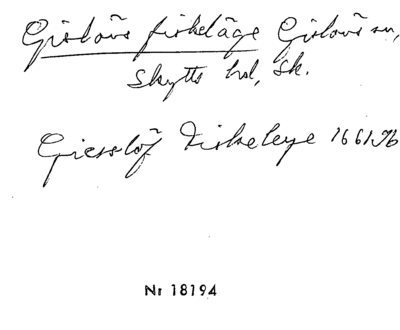 Gislövs fiskeläge Gislövs sn,
Skytts hd, Sk.
Giersslöf Fiskeleye 1661 Jb
Nr 18194